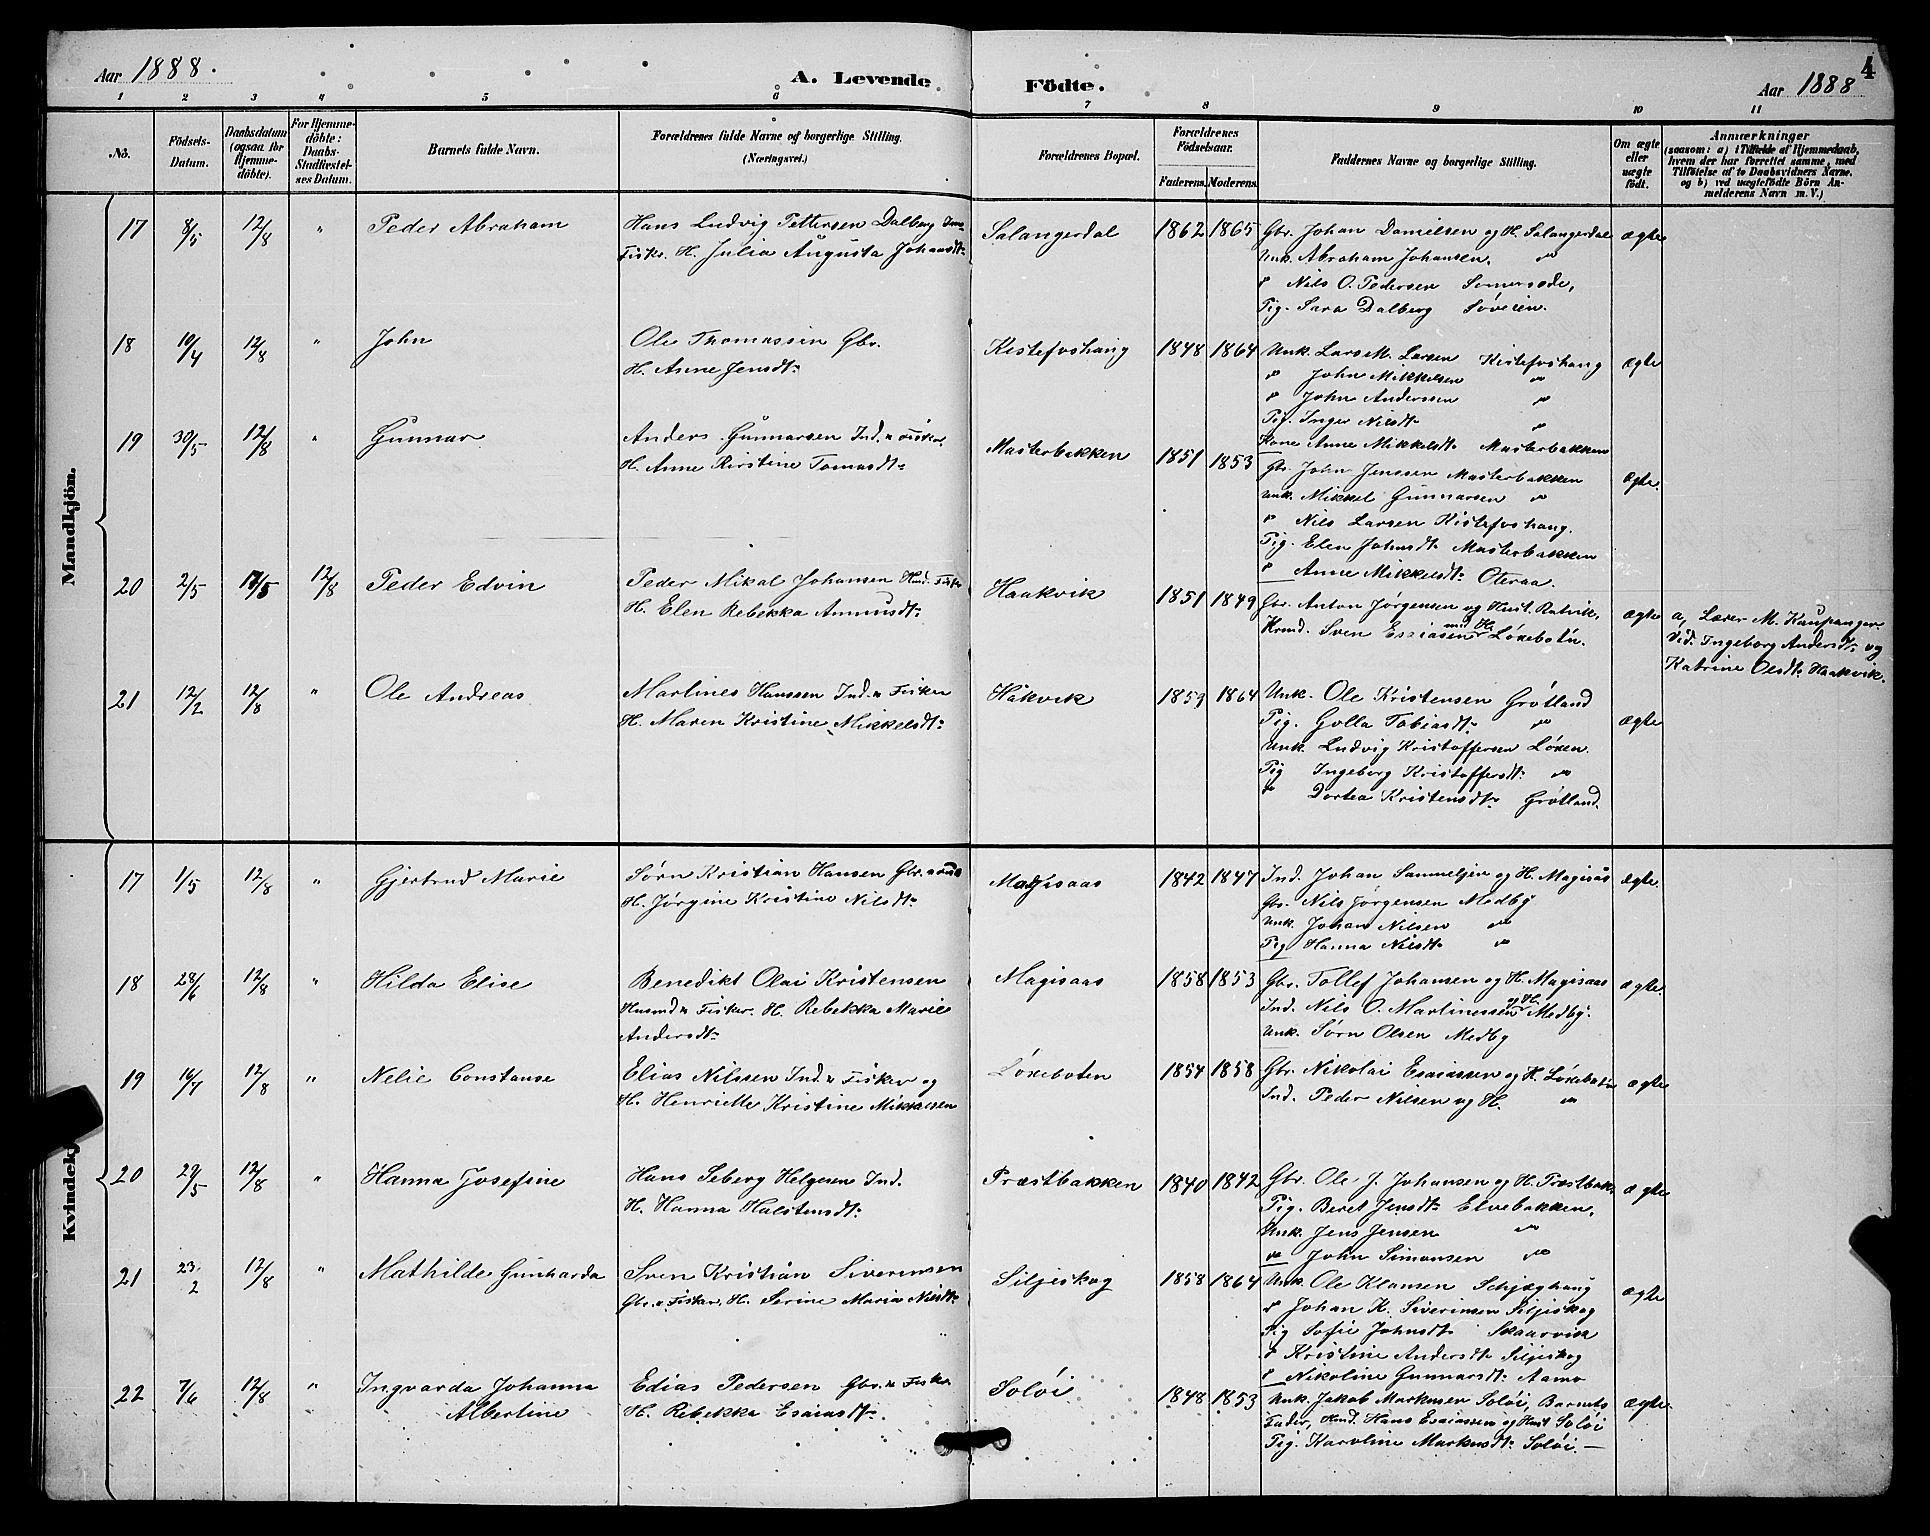 Aar 1888.
A. Levende
Födte.
Aar 1888
4
1 2 3 4 5 6 7 8 9 10 11
No.
Födsels-Datum.
Daabsdatum (ogsaa for Hjemme-döbte).
For Hjemme-döbte: Daabs-Stadfæstel-ses Datum.
Barnets fulde Navn.
Forældrenes fulde Navne og borgerlige Stilling. (Næringsvei.)
Forældrenes Bopæl.
Forældrenes Födselsaar.
Faderens. Moderens.
Faddernes Navne og borgerlige Stilling.
Om ægte eller uægte födt.
Anmærkninger
(saasom: a) i Tilfælde af Hjemmedaab,
hvem der har forrettet samme, med
Tilföielse af to Daabsvidners Navne.
og b) ved uægtefödte Börn An-
melderens Navn m. V.)
Mandkjön.
17 8/5 12/8 " Peder Abraham
Hans Ludvig Pettersen Dalberg
Fisker. H. Julia Augusta Johansdt:
Salangerdal 1862 1865
Gbr. Johan Danielsen og H. Salangerdal
Unk. Abraham Johansen. "
" Nils O. Pedersen
Pig. Sara Dalberg Søveien.
ægte
18 10/4 12/8 " John
Ole Thomassen Gbr.
H. Anne Jensdt:
Kistefoshaug 1848 1864
Unk. Lars M. Larsen Kistefoshaug
" John Mikkelsen "
" John Anderssen "
Pig. Inger Nilsdt "
Kone Anne Mikkelsdt: Masterbakken
ægte
19 30/5 12/8 " Gunnar
Anders Gunnarsen Ind. " Fisker.
H. Anne Kirstine Tomasdt:
Masterbakken 1851 1853
Gbr. John Jenssen Masterbakken
Unk. Mikkel Gunnarsen "
" Nils Larsen Kistefoshaug.
Pig. Elen Johnsdt: Masterbakken
" Anne Mikkelsdt: Oteraa.
ægte.
20 2/5 17/5 12/8 Peder Edvin
Peder Mikal Johansen Husd. Fisker
H. Elen Rebekka Amundsdt:
Haakvik 1851 1849
Gbr. Anton Jørgensen og Hust. Ratvik,
Hrmd. Sven Esaiasen med H. Løxebotn.
ægte
a, Lærer M. Kaupanger.
Vid. Ingeborg Andersdt: og
Katrine Olsdt: Haakvik.
21 12/2 12/8 " Ole Andreas
Martines Hanssen Ind. " Fisker
H. Maren Kristine Mikkelsdt:
Håkvik 1859 1864
Unk. Ole Kristensen Grøtland
Pig. Golla Tobiasdt: "
Unk. Ludvig Kristoffersen Løxen.
Pig Ingeborg Kristoffersdt: "
" Dortea Kristensdt: Grøtland.
ægte
Kvindekj
17 1/5 12/8 " Gjertrud Marie
Sørn Kristian Hansen Gbr.
H. Jørgine Kristine Nilsdt:
Magisaas 1842 1847
Ind. Johan Sammelsen og H. Magisås
Gbr. Nils Jørgensen Medby
Unk. Johan Nilsen "
Pig Hanna Nilsdt: "
ægte.
18 28/6 12/8 " Hilda Elise
Benedikt Olai Kristensen
Husmd " Fisker. H. Rebekka Marie
Andersdt:
Magisaas 1858 1853
Gbr. Tollef Johansen og H. Magisaas
Ind. Nils O. Martinessen og H. Medby.
Unk. Sørn Olsen Medby
ægte.
19 16/7 12/8 " Nelie Constanse
Elias Nilssen Ind. " Fisker og
H. Henriette Kristine Mikkelsen
Løxeboten 1854 1858
Gbr. Nikolai Esaiassen og H. Løxeboten
Ind. Peder Nilsen og H. "
ægte
20 29/5 12/8 " Hanna Josefine
Hans Seberg Helgesen Ind.
H. Hanna Halstensdt:
Præstbakken 1840 1842
Gbr. Ole J. Johansen og H. Præstbak.
Pig. Beret Jensdt: Elvebakken,
Unk. Jens Jensen "
" John Simonsen "
ægte
21 23/2 12/8 " Mathilde Gunharda
Sven Kristian Siverinsen
Gbr. " Fisker. H. Serine Maria Nilsdt:
Siljeskog 1858 1864
Unk. Ole Klausen Schjæghaug
" Johan K. Siverinsen Siljeskog
Pig Sofie Johnsdt: Skaarvik
" Kristine Andersdt: Siljeskog
" Nikoline Gunnarsdt: Aamo
ægte
22 7/6 12/8 " Ingvarda Johanna
Albertine
Edias Pedersen Gbr. " Fisker
H. Rebekka Esaiasdt:.
Soløi 1848 1853
Unk. Jakob Markusen Soløi, Barnets
Fader, Husd. Hans Esaiassen og Hust Soløi
Pig. Karoline Markusdt: Soløi.—
ægte.